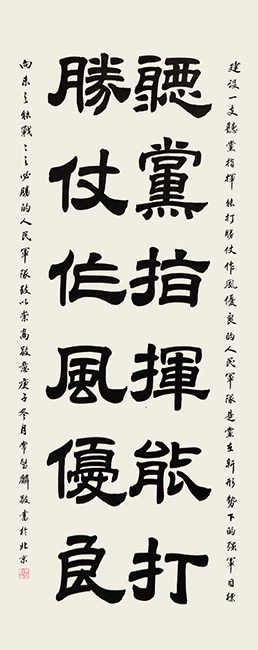 建设一支聽黨指揮能打勝仗作風優良的人民軍隊是黨在新形勢下的强軍目標
聽黨指揮能打
勝仗作風優良
向来之能戰〻之必勝的人民軍隊致以崇高敬意庚子冬月常麟敬書於北京